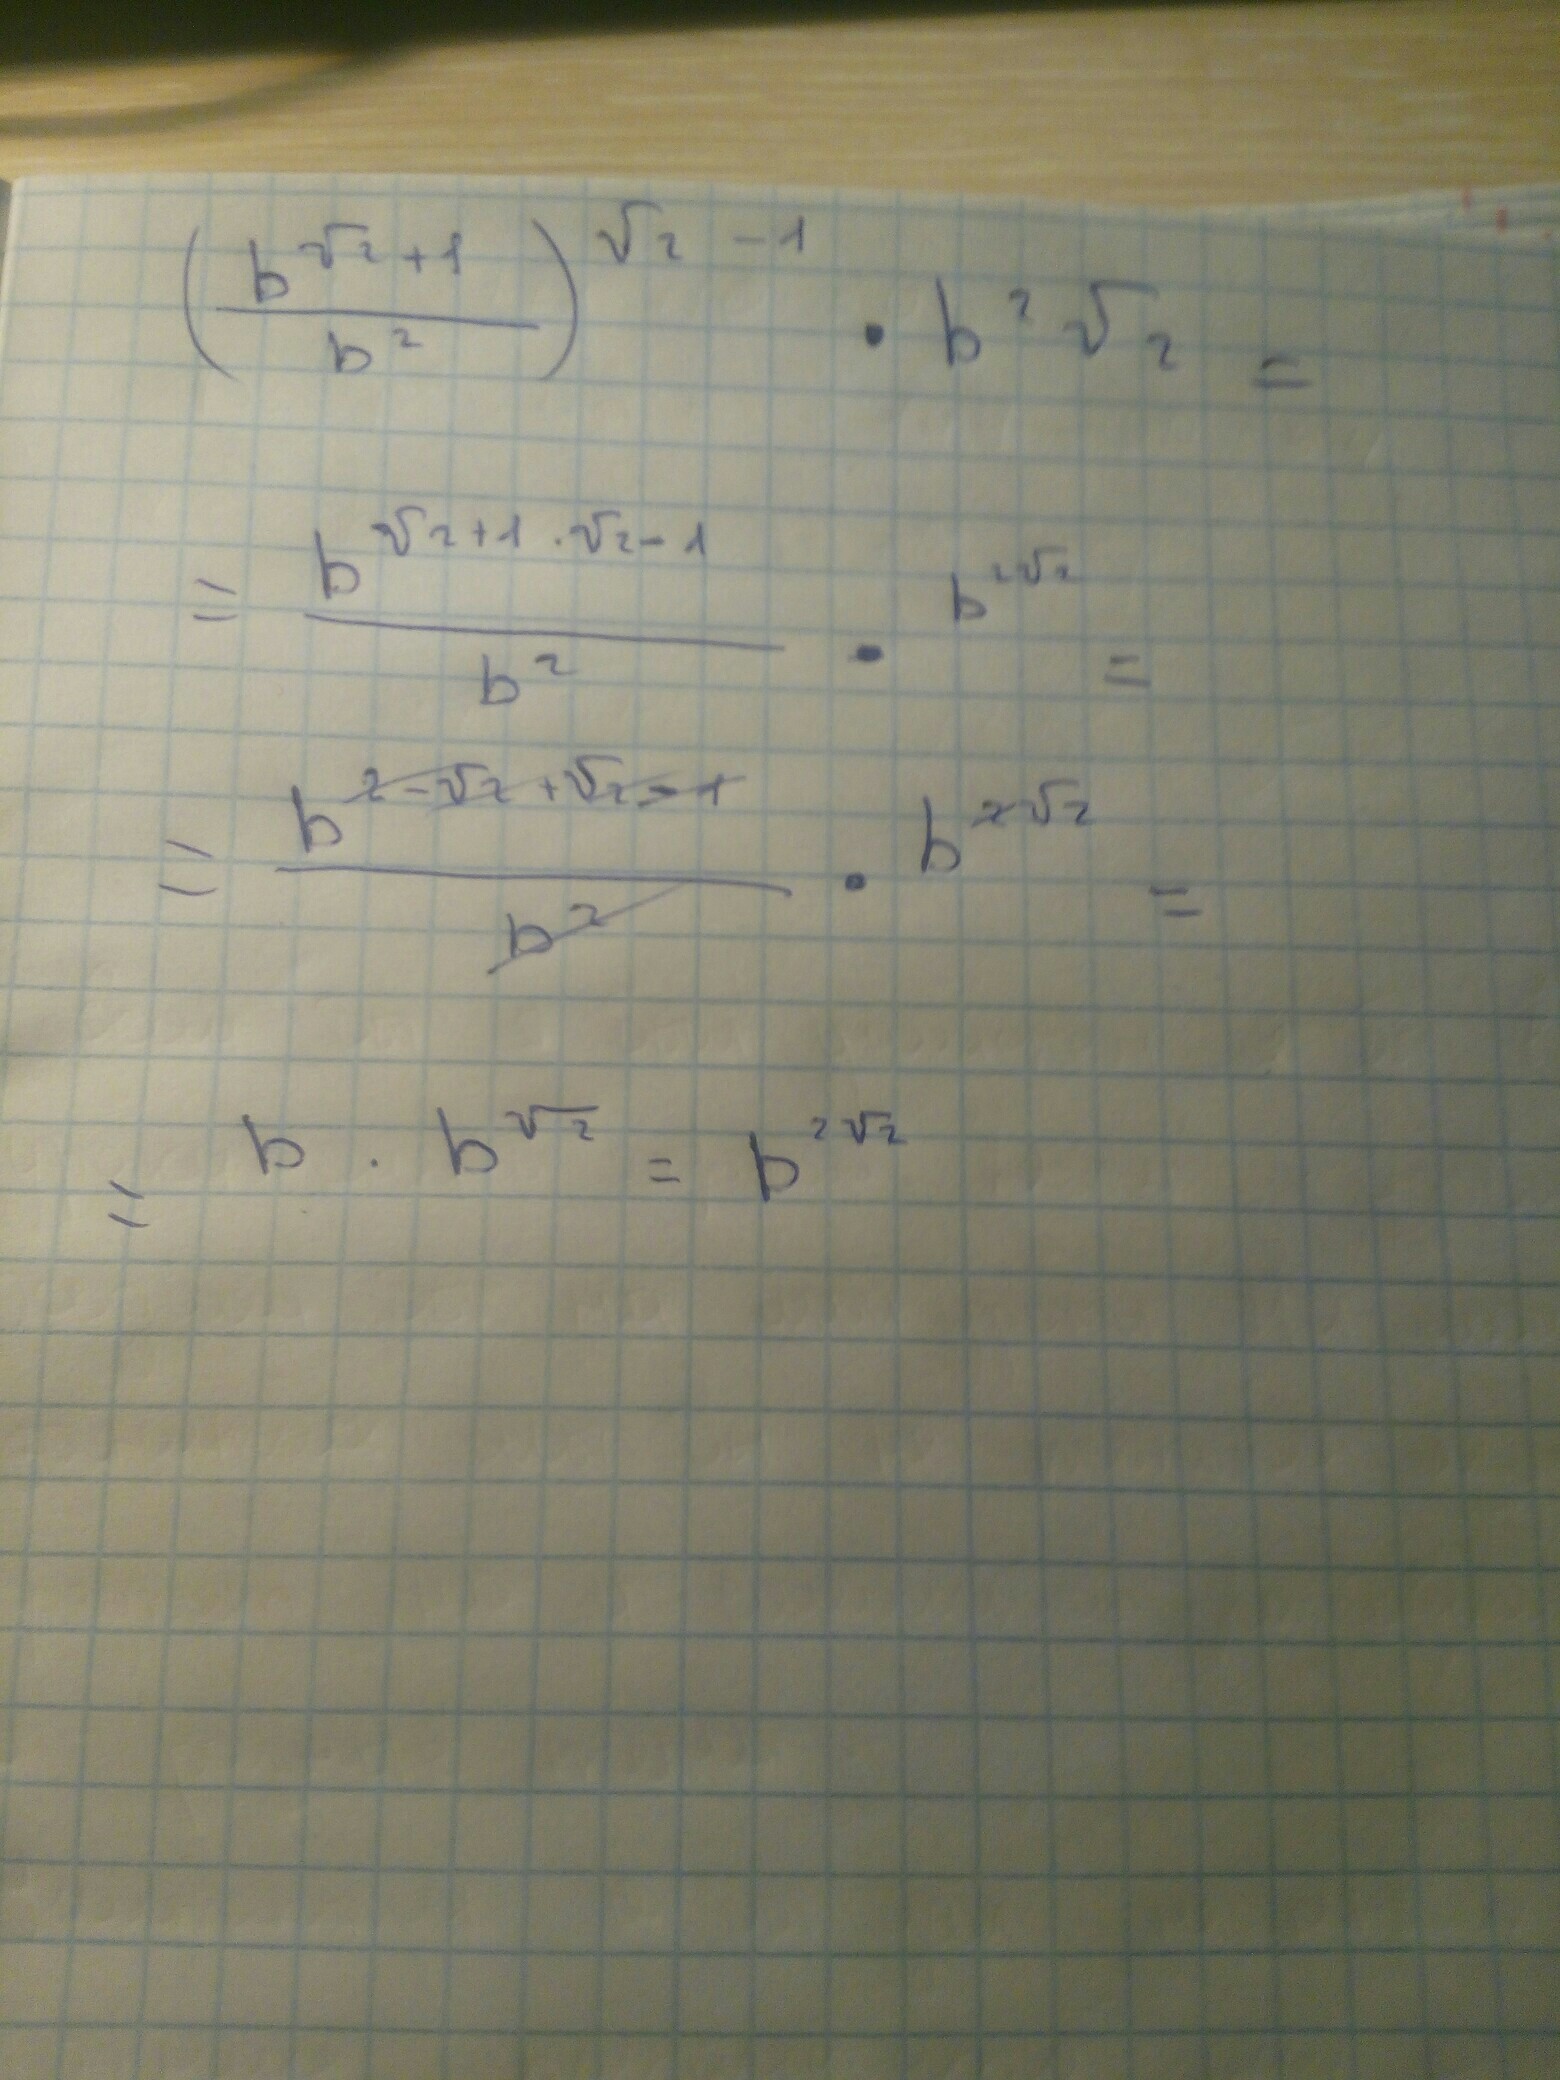 (b^{√2+1} / b^2)^{√2 -1} · b^{2√2} =
= b^{√2+1·√2-1} / b^2 · b^{2√2} =
= b^{2-√2+√2-1} / b^2 · b^{2√2} =
= b · b^{√2} = b^{2√2}